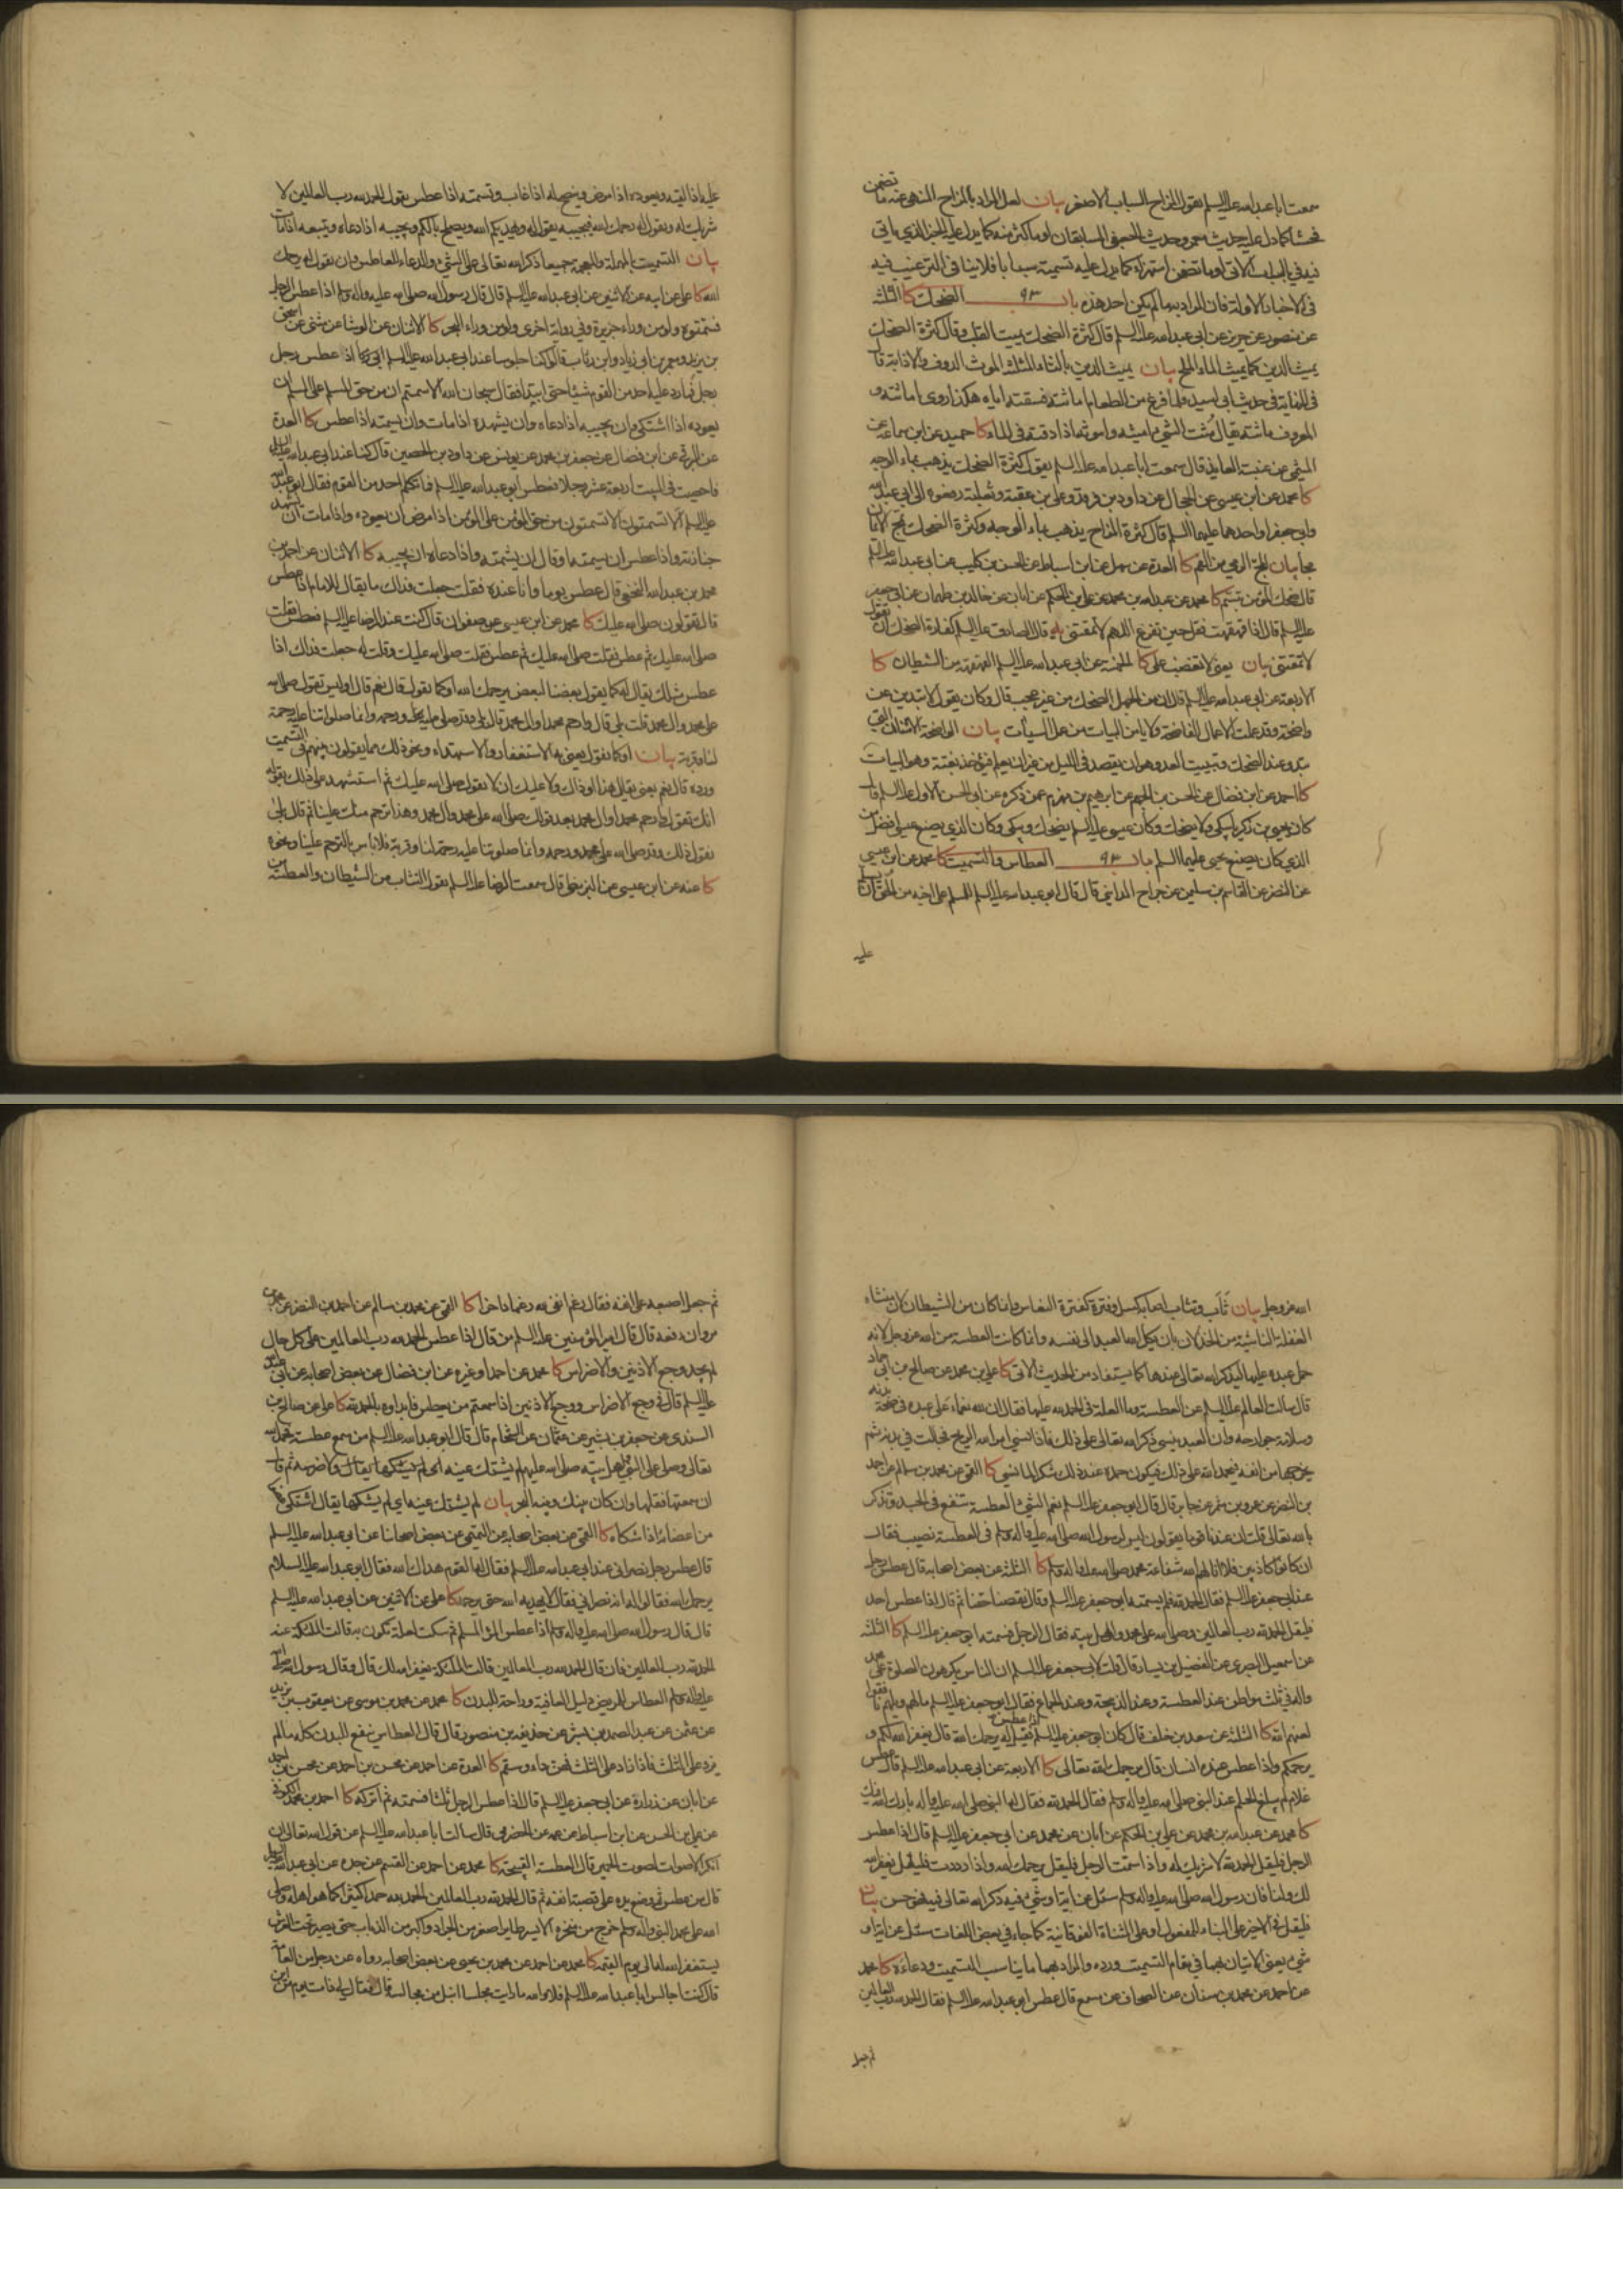 سمعت ابا عبد الله عليه السلم يقول المزاح السباب الاصغر بيان لعل المراد بالمزاح المنهى عنه ما تضمن
فحشا كما دل عليه حديث معمر وحديث الجعفى السابقان او ما كثر منه كما يدل عليه الخبر الذى ياتى
فى الاخبار الاولة فان المراد به ما لم يكن احد هذه باب ٩٣ الضحك كا الثلثة
عن منصور عن حريز عن ابى عبد الله عليه السلم قال كثرة الضحك يميت القلب وقال كثرة الضحك
يميث الدين كما يميث الماء الملح بيان يميث الدين بالثاء المثلثة الموث الدوف والاذابة قال
فى النهاية فى حديث ابى اسيد فلما فرغ من الطعام اماثته فسقته اياه هكذا روى اماثته و
المعروف ماثته يقال مثت الشىء اميثه واموثه اذا دفته فى الماء كا حميد عن ابن سماعة عن
الميثمى عن عنبسة العابد قال سمعت ابا عبد الله عليه السلم يقول كثرة الضحك يذهب بماء الوجه
كا محمد عن ابن عيسى عن الحجال عن داود بن فرقد وعلى بن عقبة وثعلبة رفعوه الى ابى عبد الله
وابى جعفر او احدهما عليهما السلم قال كثرة المزاح يذهب بماء الوجه وكثرة الضحك تمج الايمان
مجا بيان المج الرمى من الفم كا العدة عن سهل عن ابن اسباط عن الحسن بن كليب عن ابى عبد الله عليه السلم
قال ضحك المؤمن تبسم كا محمد عن عبد الله بن محمد عن على بن الحكم عن ابان عن خالد بن طهمان عن ابى جعفر
عليه السلم قال اذا قهقهت فقل حين تفرغ اللهم لا تمقتنى قال الصادق عليه السلم كفارة الضحك ان يقول
لا تمقتنى بيان يعنى لا تغضب على كا الخمسة عن ابى عبد الله عليه السلم القهقهة من الشيطان كا
الاربعة عن ابى عبد الله عليه السلم قال ان من الجهل الضحك من غير عجب قال وكان يقول لا تبدين عن
واضحة وقد عملت الاعمال الفاضحة ولا يامن البيات من عمل السيآت بيان الواضحة الاسنان التى
تبدو عند الضحك وتبييت العدو هو ان يقصد فى الليل من غير ان يعلم فيؤخذ بغتة وهو البيات
كا احمد عن ابن فضال عن الحسن بن الجهم عن ابرهيم بن مهزم عمن ذكره عن ابى الحسن الاول عليه السلم قال
كان يحيى بن زكريا يبكى ولا يضحك وكان عيسى عليه السلم يضحك ويبكى وكان الذى يصنع عيسى افضل من
الذى كان يصنع يحيى عليهما السلم باب ٩٤ العطاس والتسميت كا محمد عن ابن عيسى
عن النضر عن القاسم بن سليمن عن جراح المداينى قال قال ابو عبد الله عليه السلم للمسلم على اخيه من الحق ان يسلم
عليه
عليه اذا لقيه ويعوده اذا مرض وينصح له اذا غاب وتسمته اذا عطس يقول الحمد لله رب العالمين لا
شريك له ويقول له يرحمك الله فيجيبه يقول له يهديكم الله ويصلح بالكم ويجيبه اذا دعاه ويتبعه اذا مات
بيان التسميت بالمهملة والمعجمة جميعا ذكر الله تعالى على الشىء والدعاء للعاطس وان يقول له يرحمك
الله كا على عن ابيه عن الاثنين عن ابى عبد الله عليه السلم قال قال رسول الله صلى الله عليه واله وسلم اذا عطس الرجل
فسمتوه ولو من وراء جزيرة وفى رواية اخرى ولو من وراء البحر كا الاثنان عن الوشا عن مثنى عن اسحق
بن يزيد ومعمر بن ابى زياد وابن رئاب قالوا كنا جلوسا عند ابى عبد الله عليه السلم اذ عطس رجل
فما رد عليه احد من القوم شيئا حتى ابتدا فقال سبحان الله الا سمتم ان من حق المسلم على المسلم ان
يعوده اذا اشتكى وان يجيبه اذا دعاه وان يشهده اذا مات وان يسمته اذا عطس كا العدة
عن البرقى عن ابن فضال عن جعفر بن محمد عن يونس عن داود بن الحصين قال كنا عند ابى عبد الله عليه السلم
فاحصيت فى البيت اربعة عشر رجلا فعطس ابو عبد الله عليه السلم فما تكلم احد من القوم فقال ابو عبد الله
عليه السلم الا تسمتون الا تسمتون من حق المؤمن على المؤمن اذا مرض ان يعوده واذا مات ان يشهد
جنازته واذا عطس ان يسمته او قال ان يشمته واذا دعاه ان يجيبه كا الاثنان عن احمد بن
محمد بن عبد الله النخعى قال عطس يوما وانا عنده فقلت جعلت فداك ما يقال للامام اذا عطس
قال تقولون صلى الله عليك كا محمد عن ابن عيسى عن صفوان قال كنت عند الرضا عليه السلم فعطس فقلت
صلى الله عليك ثم عطس فقلت صلى الله عليك ثم عطس فقلت صلى الله عليك وقلت له جعلت فداك اذا
عطس مثلك يقال له كما يقول بعضنا لبعض يرحمك الله او كما يقول قال نعم قال او ليس تقول صلى الله
على محمد وال محمد قلت بلى قال وارحم محمدا وال محمد قال بلى وقد صلى عليه ورحمه وانما صلواتنا عليه رحمة
لنا وقربة بيان او كما نقول يعنى به الاستغفار والاستهداء ونحو ذلك مما يقولون بينهم فى التسميت
ورده قال نعم يعنى يقال هذا او ذاك ولا عليك ان لا تقول صلى الله عليك ثم استشهد على ذلك بقوله
انك تقول ارحم محمدا وال محمد بعد قولك صلى الله على محمد وال محمد وهذا ترحم منك علينا ثم قال بلى
نقول ذلك وقد صلى الله على محمد ورحمه وانما صلوتنا عليه رحمة لنا وقربة فلا باس بالترحم علينا ونحوه
كا عنه عن ابن عيسى عن البزنطى قال سمعت الرضا عليه السلم يقول التثاب من الشيطان والعطسة من
الله عز وجل بيان ثأب وتثاب اصابه كسل وفترة كفترة النعاس وانما كان من الشيطان لان منشاء
الغفلة الناشية من الخذلان بان يكل الله العبد الى نفسه وانما كانت العطسة من الله عز وجل لانه
حمل عبده عليها ليذكر الله تعالى عندها كما يستفاد من الحديث الاتى كا على بن محمد عن صالح بن ابى حماد
قال سالت العالم عليه السلم عن العطسة وما العلة فى الحمد لله عليها فقال ان لله نعماء على عبده فى صحة بدنه
وسلامة جوارحه وان العبد ينسى ذكر الله تعالى على ذلك فاذا نسى امر الله الريح فجالت فى بدنه ثم
يخرجها من انفه فيحمد الله على ذلك فيكون حمده عند ذلك شكرا لما نسى كا القمى عن محمد بن سالم عن احمد
بن النضر عن عمرو بن شمر عن جابر قال قال ابو جعفر عليه السلم نعم الشىء العطسة تنفع فى الجسد وتذكر
بالله تعالى قلت ان عندنا قوما يقولون ليس لرسول الله صلى الله عليه واله وسلم فى العطسة نصيب فقال
ان كانوا كاذبين فلا انالهم الله شفاعة محمد صلى الله عليه واله وسلم كا الثلثة عن بعض اصحابه قال عطس رجل
عند ابى جعفر عليه السلم فقال الحمد لله فلم يسمته ابو جعفر عليه السلم وقال نقصنا حقنا ثم قال اذا عطس احدكم
فليقل الحمد لله رب العالمين وصلى الله على محمد واهل بيته فقال الرجل فسمته ابو جعفر عليه السلم كا الثلثة
عن اسمعيل البصرى عن الفضيل بن يسار قال قلت لابى جعفر عليه السلم ان الناس يكرهون الصلوة على محمد
واله فى ثلث مواطن عند العطسة وعند الذبيحة وعند الجماع فقال ابو جعفر عليه السلم ما لهم ويلهم نافقوا
لعنهم الله كا الثلثة عن سعد بن خلف قال كان ابو جعفر عليه السلم اذا عطس فقيل له يرحمك الله قال يغفر الله لكم و
يرحمكم واذا عطس عنده انسان قال يرحمك الله تعالى كا الاربعة عن ابى عبد الله عليه السلم قال عطس
غلام لم يبلغ الحلم عند النبى صلى الله عليه واله وسلم فقال الحمد لله فقال له النبى صلى الله عليه واله بارك الله فيك
كا محمد عن عبد الله بن محمد عن على بن الحكم عن ابان عن محمد عن ابى جعفر عليه السلم قال اذا عطس
الرجل فليقل الحمد لله لا شريك له واذا سمت الرجل فليقل يرحمك الله واذا رددت فليقل يغفر الله
لك ولنا فان رسول الله صلى الله عليه واله وسلم سئل عن اية او شىء فيه ذكر الله تعالى فهو حسن بيان
فليقل فى الاخير على البناء للمفعول او على المثناة الفوقانية كما جاء فى بعض اللغات سئل عن اية او
شىء يعنى الاتيان بهما فى مقام التسميت ورده والمراد بهما ما يناسب التسميت ودعاءه كا محمد
عن احمد عن محمد بن سنان عن الصحاف عن سمع قال عطس ابو عبد الله عليه السلم فقال الحمد لله رب العالمين
ثم جعل
ثم جعل اصبعه على انفه فقال رغم انفى لله رغما داخرا كا القمى عن محمد بن سالم عن احمد بن النضر عن محمد بن
مروان رفعه قال قال امير المؤمنين عليه السلم من قال اذا عطس الحمد لله رب العالمين على كل حال
لم يجد وجع الاذنين والاضراس كا محمد عن احمد او غيره عن ابن فضال عن بعض اصحابه عن ابى عبد الله
عليه السلم قال فى وجع الاضراس ووجع الاذنين اذا سمعتم من يعطس فابداوه بالحمد لله كا على عن صالح بن
السندى عن جعفر بن بشير عن عثمان عن الشحام قال قال ابو عبد الله عليه السلم من سمع عطسة فحمد الله
تعالى وصلى على النبى واهل بيته صلى الله عليهم لم يشتك عينه ولا ضرسه ثم قال
ان سمعتها فقلها وان كان بينك وبينه البحر بيان لم يشتك عينه اى لم يشكها يقال اشتكى عضوا
من اعضائه اذا شكاه كا القمى عن بعض اصحابه عن التميمى عن بعض اصحابنا عن ابى عبد الله عليه السلم
قال عطس رجل نصرانى عند ابى عبد الله عليه السلم فقال له القوم هداك الله فقال ابو عبد الله عليه السلام
يرحمك الله فقالوا له انه نصرانى فقال لا يهديه الله حتى يرحمه كا على عن الاثنين عن ابى عبد الله عليه السلم
قال قال رسول الله صلى الله عليه واله وسلم اذا عطس المرء المسلم ثم سكت لعلة تكون به قالت الملائكة عنه
الحمد لله رب العالمين فان قال الحمد لله رب العالمين قالت الملائكة يغفر الله لك قال وقال رسول الله صلى الله
عليه واله وسلم العطاس للمريض دليل العافية وراحة للبدن كا محمد عن محمد بن موسى عن يعقوب بن يزيد
عن عثمن عن عبد الصمد بن بشير عن حذيفة بن منصور قال قال العطاس ينفع البدن كله ما لم
يزد على الثلث فاذا زاد على الثلث فهو داء وسقم كا العدة عن احمد عن محسن بن احمد
عن ابان عن زرارة عن ابى جعفر عليه السلم قال اذا عطس الرجل ثلثا فسمته ثم اتركه كا احمد بن محمد الكوفى
عن على بن الحسن عن ابن اسباط عن عمه عن الحضرمى قال سالت ابا عبد الله عليه السلم عن قول الله تعالى ان
انكر الاصوات لصوت الحمير قال العطسة القبيحة كا محمد عن احمد عن القسم عن جده عن ابى عبد الله عليه السلم
قال من عطس ثم وضع يده على قصبة انفه ثم قال الحمد لله رب العالمين الحمد لله حمدا كثيرا كما هو اهله وصلى
الله على محمد النبى واله وسلم خرج من منخره الايسر طاير اصغر من الجراد واكبر من الذباب حتى يصير تحت العرش
يستغفر الله له الى يوم القيمة كا محمد عن احمد عن محمد بن عيسى عن بعض اصحابه رواه عن رجل من العامة
قال كنت اجالس ابا عبد الله عليه السلم فلا والله ما رايت مجلسا انبل من مجالسه قال فقال لى ذات يوم من اين